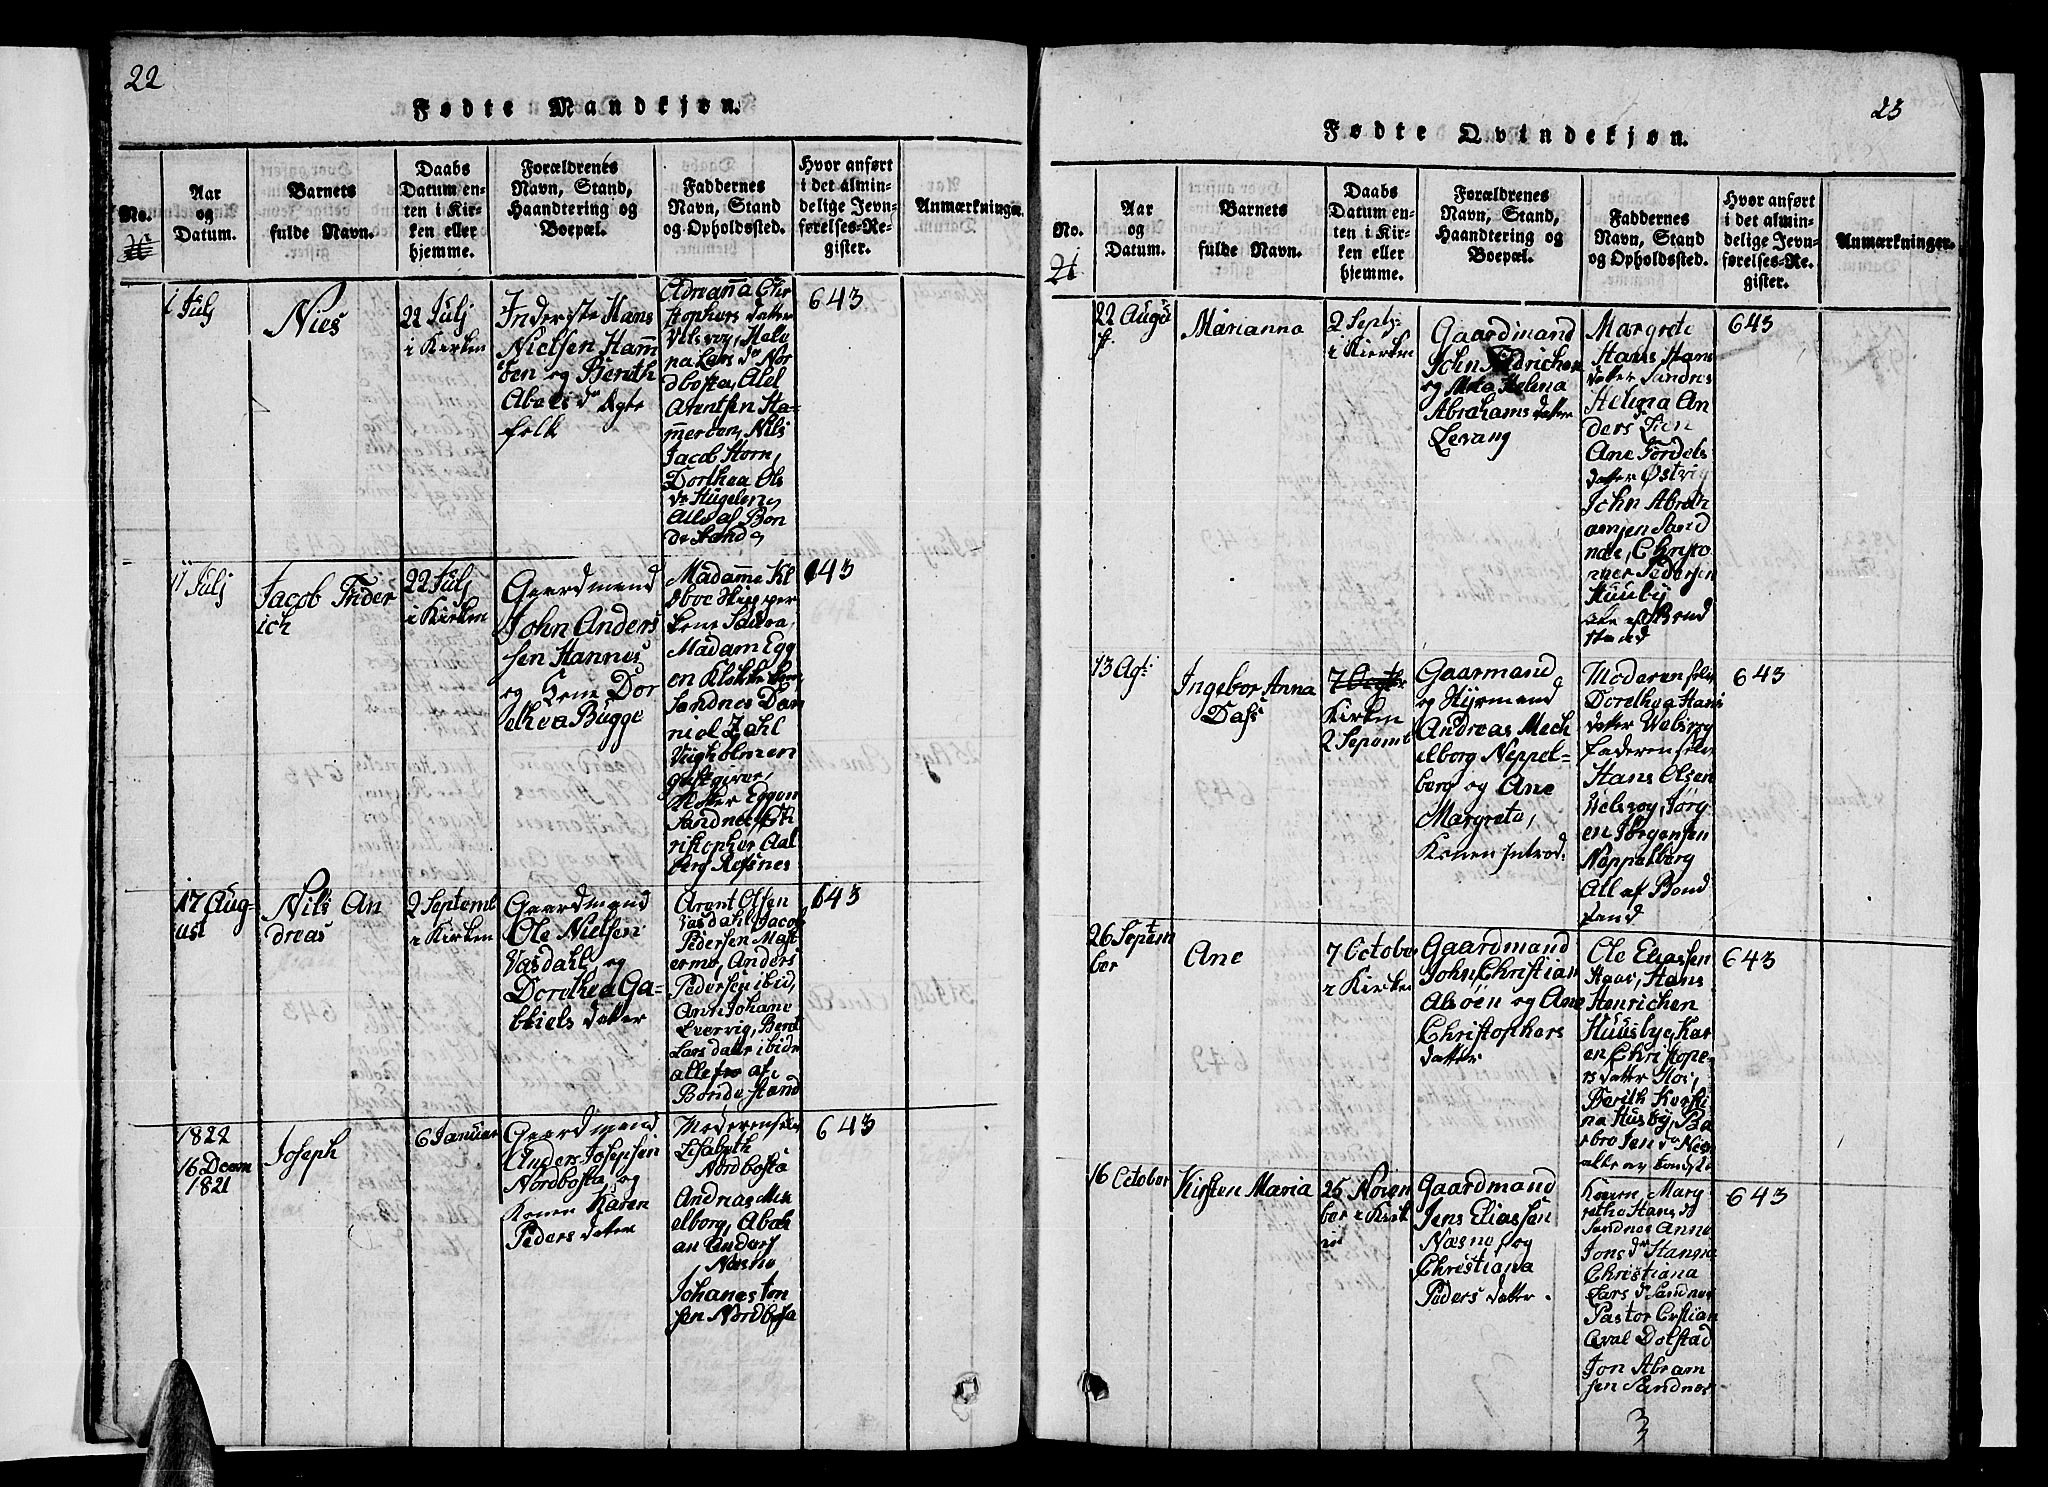 22
Fødte Mandkjøn.
No.
Aar
og
Datum.
Barnets
fulde Navn.
Daabs
Datum en-
ten i Kir-
ken eller
hjemme.
Forældrenes
Navn, Stand,
Haandtering og
Boepæl.
Faddernes
Navn, Stand
og Opholdssted.
Hvor anført
i det almin-
delige Jevn-
førelses-Re-
gister.
Anmærkninger.
1 Julj
Nies
22 Julj
i Kirken
Inderste Hans
Nielsen Ham
ben og Bereth
Abels dr Egte
folk
Adrianna Chr
stophers datter
Vilsvog, Hele
na Lars dr Nor
dbosta, Alel
Arentsen Ha-
meroen, Nils
Jacob Horn,
Dorthea Ols
dr Hugelen,
Alle af Bon
de stand,
643
11 Julj
Jacob Frider
ich
22 Julj
i Kirken
Gaardmand
John Anders
sen Hannes
og Lene Dor
ethea Bugge
Madamme Kl
Madam Egg
en Klokke
Sandnes Dan
niel Zahl
Viigholmen
gastgiver,
Eggen
Sandnes, Ch
ristopher Aal
berg Rosnes
643
17 Aug-
ust
Nils An
dreas
2 Septemb
i Kirken
Gaardmand
Ole Nielsen
Vasdahl og
Dorethea Ga-
briels datter
Arent Olsen
Vasdahl Jacob
Pedersen Mast
ermo, Anders
Pedersen ibid,
Ann Johane
Leervig, Beret
Lars datter ibid
alle af
Bonde stand
643
1822
16 Decem
1821
Joseph
6 Januar
Gaardmand
Anders Josepsen
Nordbosta, og
Konen Karen
Peders datter
Moderen selv
Lisabeth
Nordbosta
Andreas Mek
elborg, Abrah
am Anders
Næsne
Johanes Jon
sen Nordbosta
643
23
Fødte Qvindekjøn.
No.
21
Aar
og
Datum.
Barnets
fulde Navn.
Daabs
Datum en-
ten i Kir-
ken eller
hjemme.
Forældrenes
Navn, Stand,
Haandtering og
Boepæl.
Faddernes
Navn, Stand
og Opholdssted.
Hvor anført
i det almin-
delige Jevn-
førelses-Re-
gister.
Anmærkninger.
22 Augu
st.
Marianna
2 Septr:
i Kierken
Gaardmand
John Fridrichsen
og Meta Helena
Abrahams datter
Levang
Margrete
Hans Hans
datter Sandnes
Helena An
ders Lien
Ane Tordels
datter Østvig
John Abrah
amsen Sand
nes, Christo
pher Pedersen
Huusby
alle af Bond
stand
643
13 Agt:
Ingebor Anna
Dass
Kirken
2 Sepemb
Gaarmand
og Styrmand
Andreas Mech
elborg Neppel-
berg og Ane
Margrete,
Konen introd:
Moderen selv
Dorethea Hans
datter Velsvog
Faderen selv
Hans Olsen
Velsvog, Jørg
en Jørgensen
Neppelberg
All af Bond
stand
643
26 Septem
ber
Ane
7 October
i Kirken
Gaardmand
John Christian
Alsøen og Ane
Christophers
datter
Ole Eliassen
Haar, Hans
Henrichen
Huusbye, Kar
en Christope-
rs datter Mo,
Berith Kirsti
na Husby, Ba
rbro Jens dr Nes
643
16 October
Kirsten Maria
25 Novem
ber i Kirk
en
Gaardmand
Jens Eliassen
Næsne og
Christiana
Peders datter.
Konen, Marg
retha Hans dr
Sandnes Anne
Jons dr Stangna
Christiana
Lars dr Sandnes
Pastor Cristian
Qval Dolstad
Jon Abram
sen Sandnes
643
3